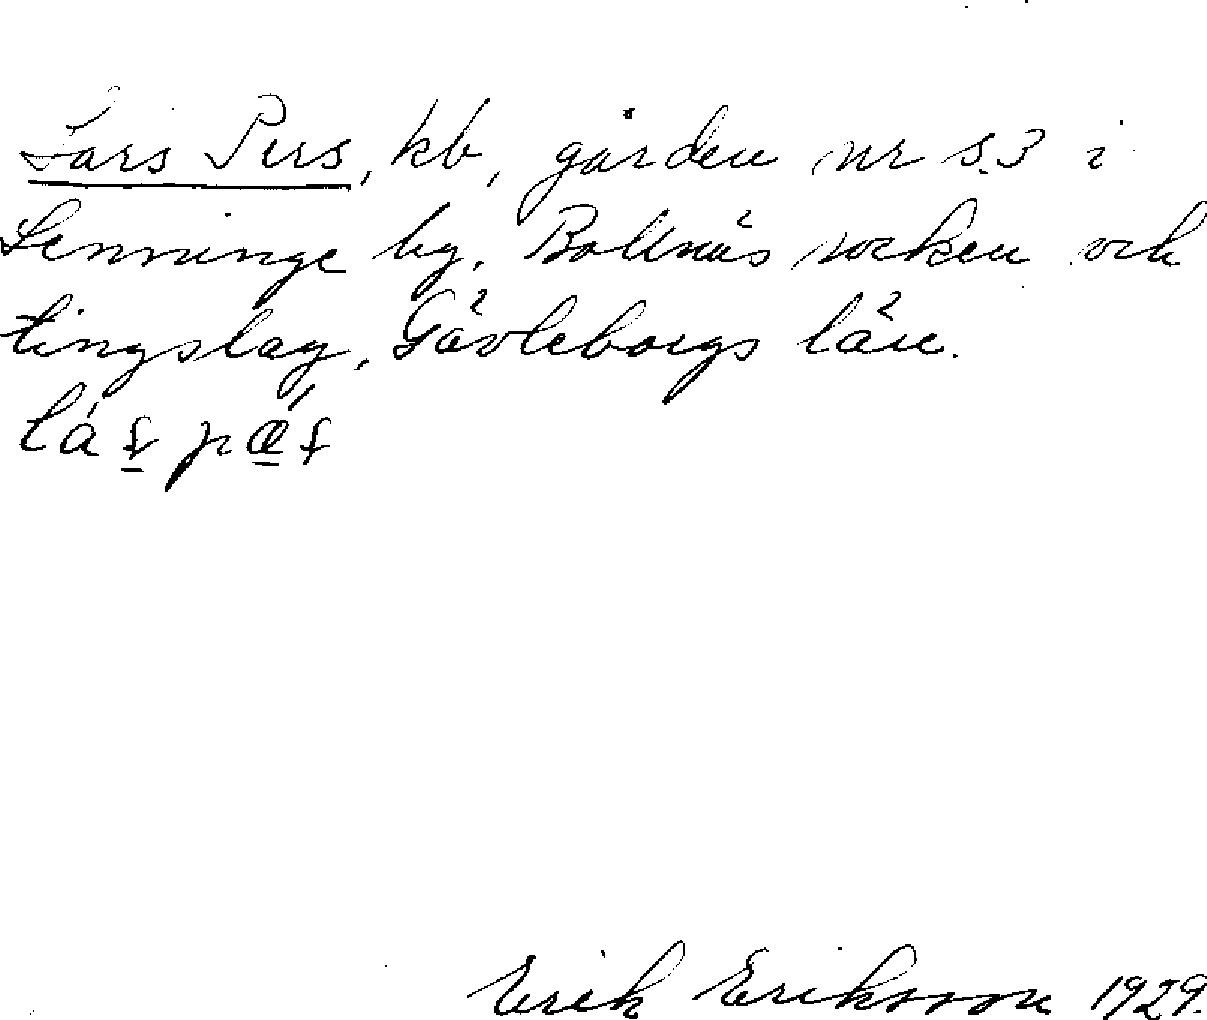 Lars Pers, kb, gården nr s.3 i
Lenninge by, Bollnäs socken och
tingslag, Gävleborgs län.
Erik Eriksson 1929.